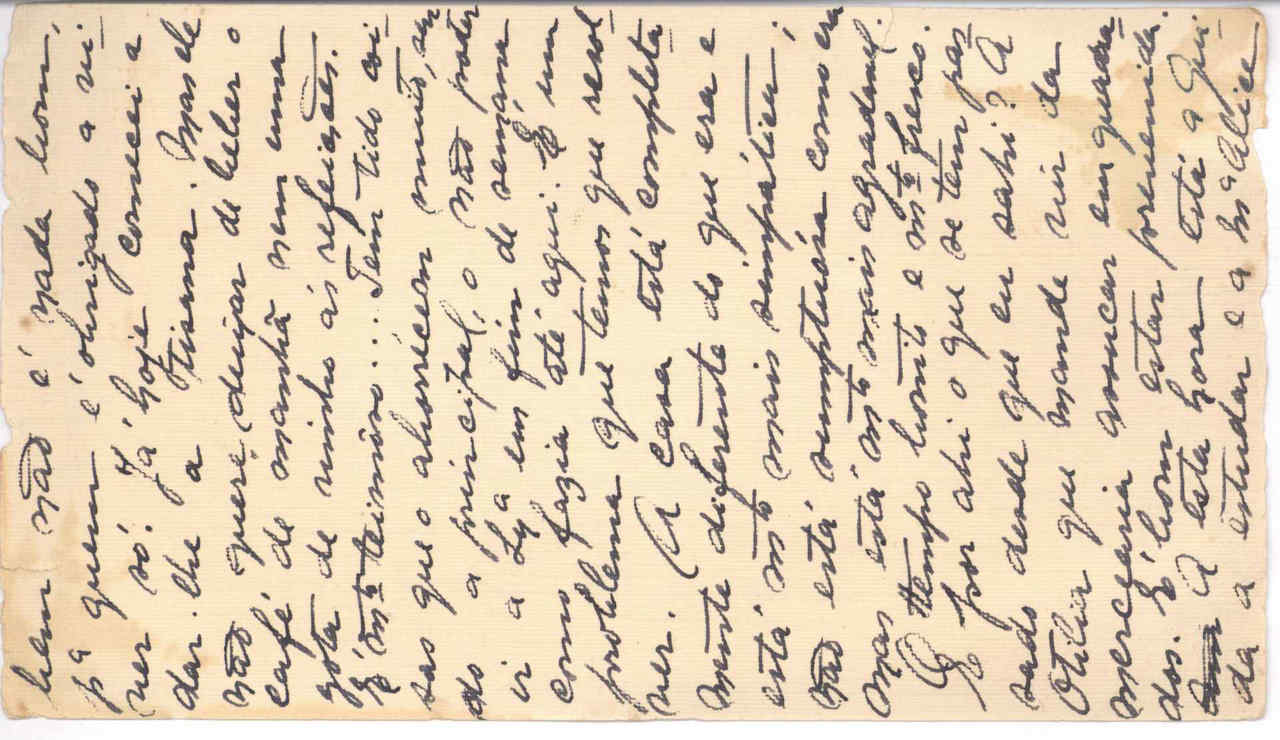 bem não é nada bom,
pª quem é obrigado a vi-
ver só. Já hoje comecei a
dar-lhe a Tisana. Mas ele
não quere deixar de beber o
café de manhã nem uma
gota de vinho ás refeições.
É mtº teimôso... Tem tido coi-
sas que o aborrécem muito, sen
do a principal, o não poder
ir a Lxª em fins de semana
como fazia até aqui. É um
problema que temos que resol-
ver. A casa está completa-
mente diferente do que era e
está mtº mais simpática;
não está sumptuósa como era
mas está mtº mais agradavel.
O tempo bonito e mtº fresco.
E por ahi o que se tem pas-
sado desde que eu sahi? A
Otilia que mande vir da
mercearia assucar em quadra-
dos. É bom estar prevenida.
A esta hora está a Gui-
da a estudar e a Mª Alice